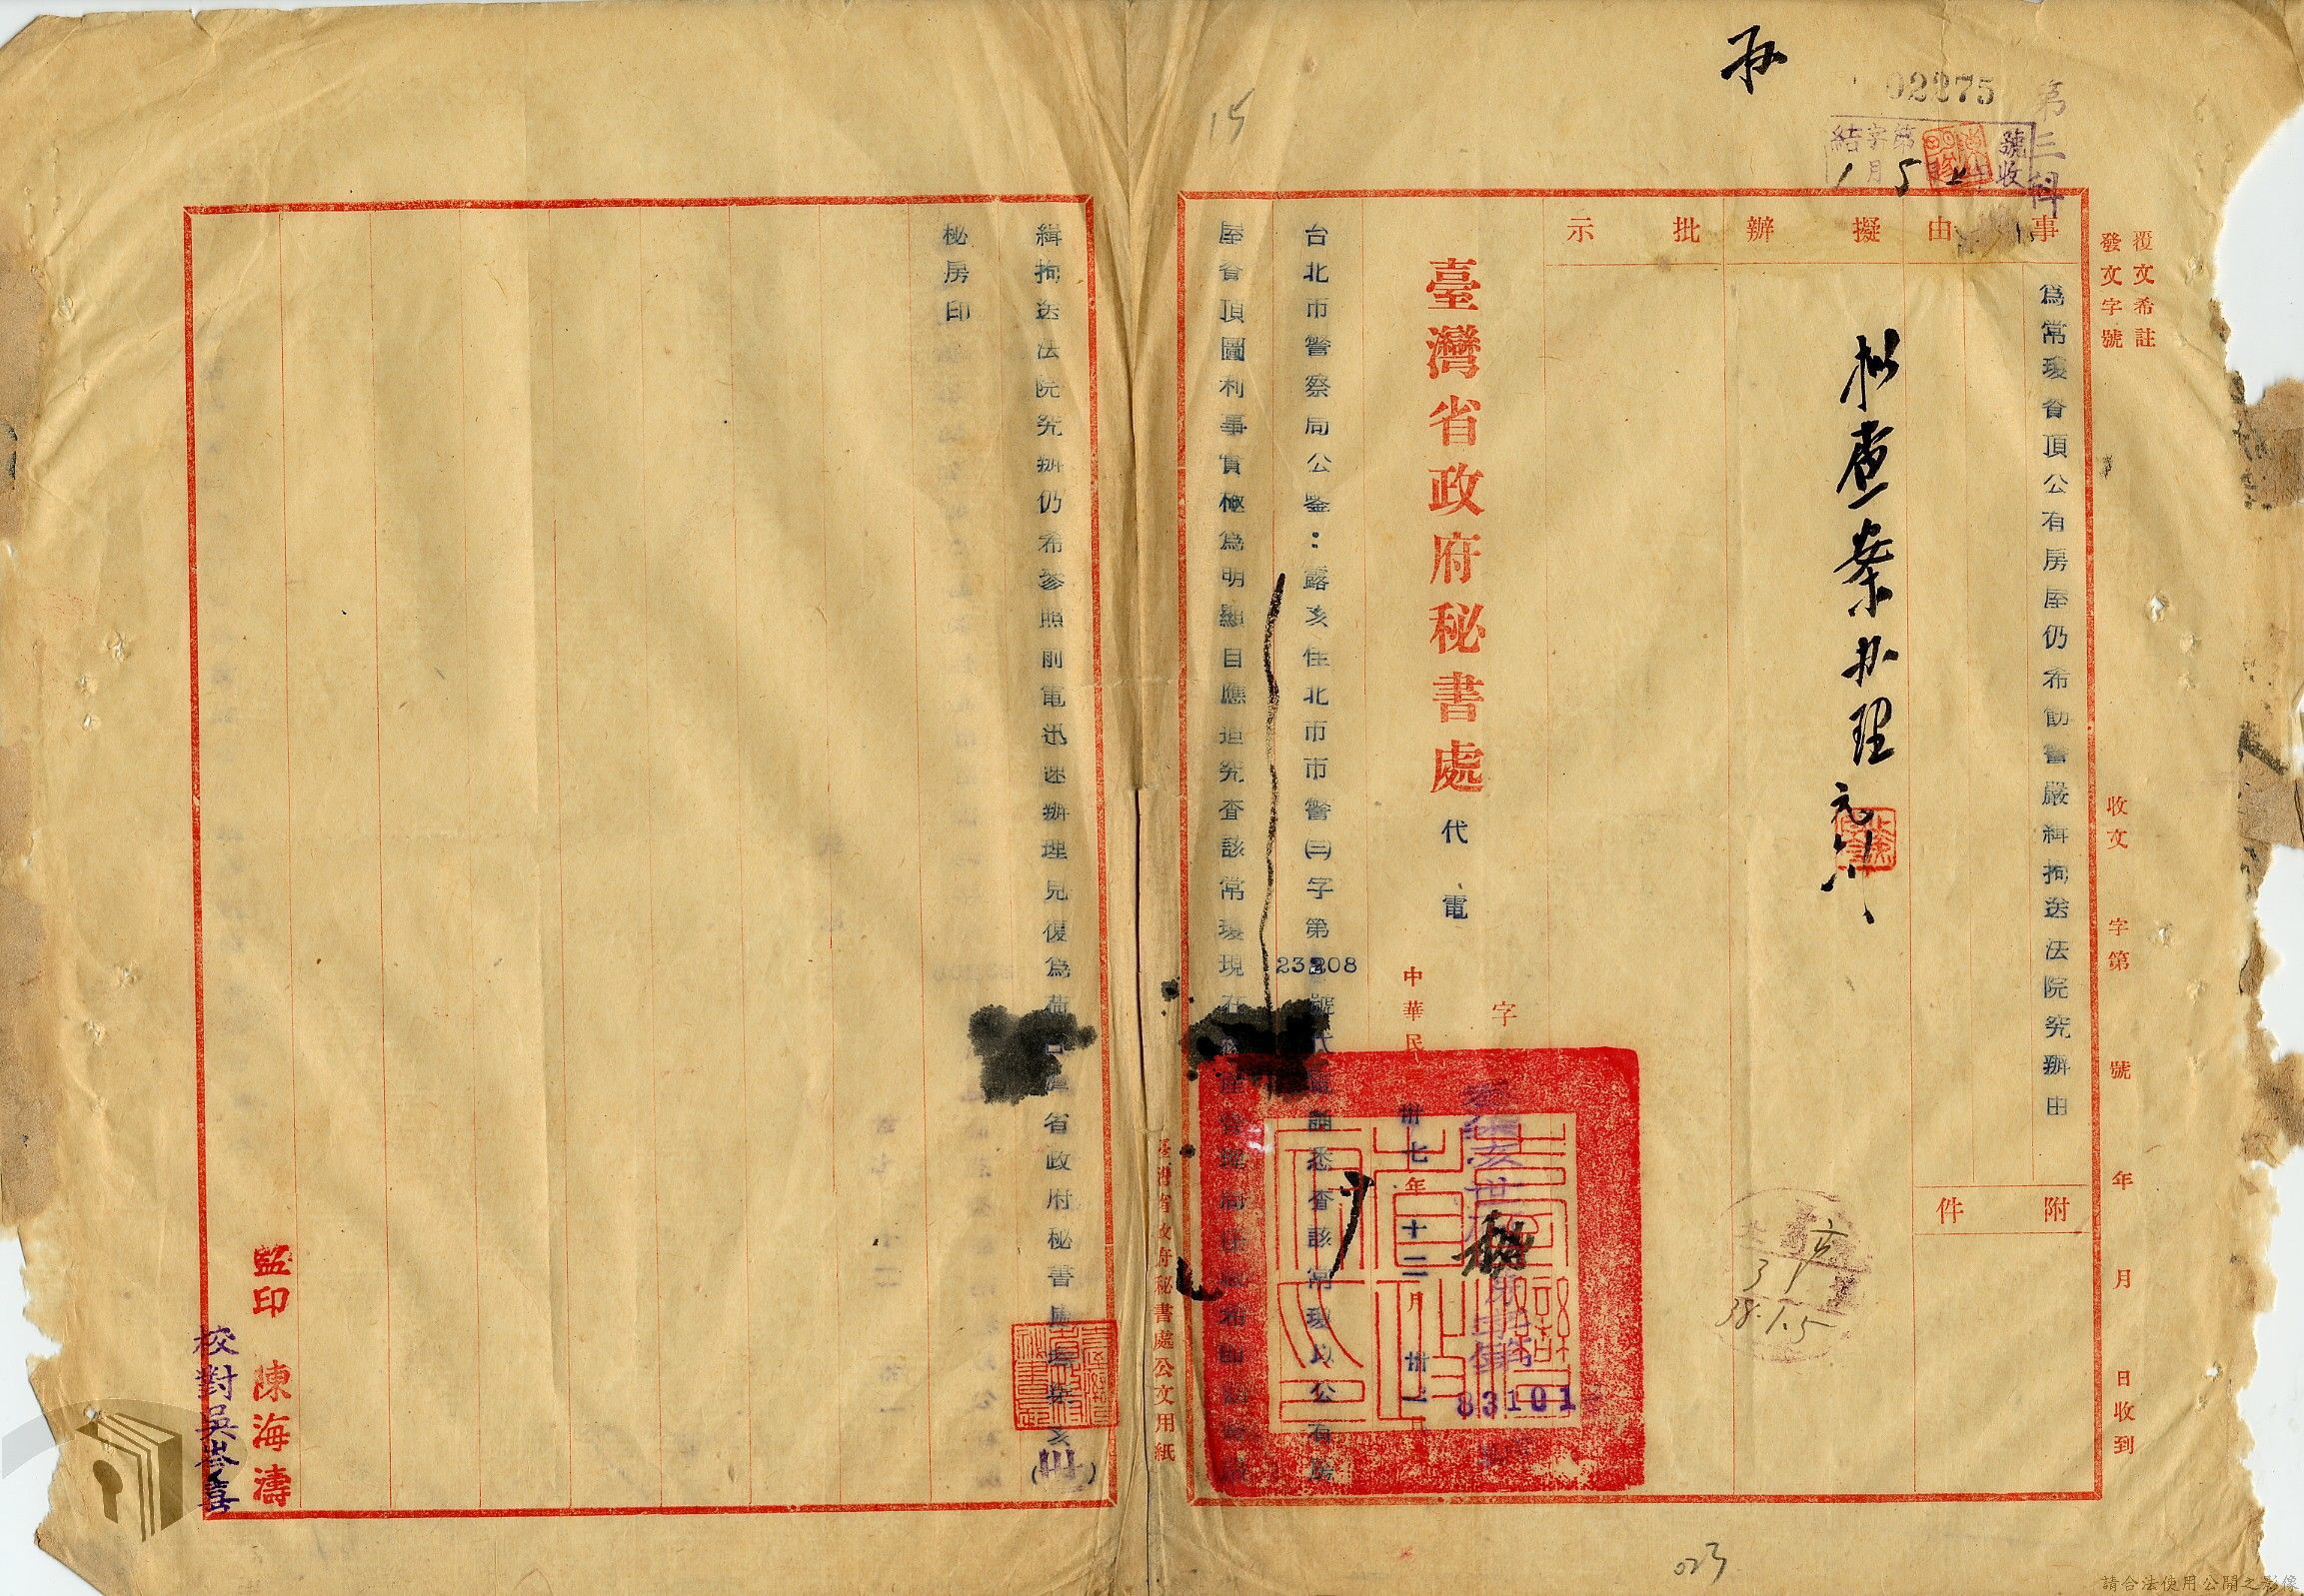 02275
第三科
結字第 號收
1月5
15
覆文希註
發文字號
收文 字第 號 年 月 日收到
事由
擬辦
批示
為常瓊省頂公有房屋仍希飭警嚴緝拘送法院究辦由
附件
拟查案办理
元
38.1.5
臺灣省政府秘書處
代電
字
83101
中華民
卅七年十二月卅一日
台北市警察局公鑒:露亥佳北市市警㈢字第23208號代電誦悉查該常瓊以公有房
屋省頂圖利事實極為明顯自應追究查該常瓊現在
緝拘送法院究辦仍希參照前電迅速辦理見復為荷
省政府秘書處
亥(卅)
秘房印
臺灣省政府秘書處公文用紙
監印 陳海濤
校對吳
023
請合法使用公開之影像